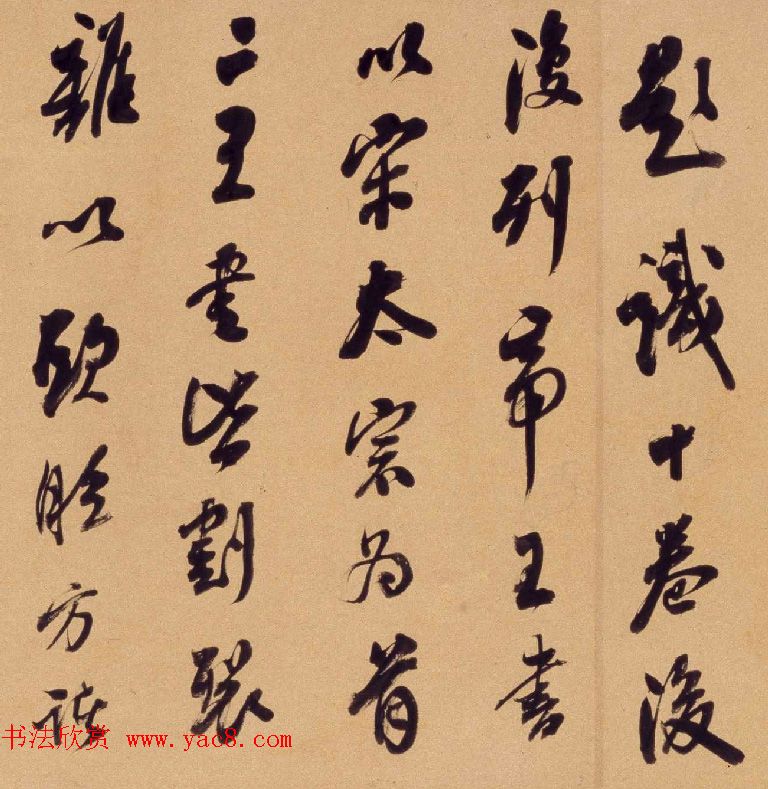 題識十卷後
復列帝王書
以宋太宗為首
二王書皆割裂
以方
书法欣赏 www.yac8.com